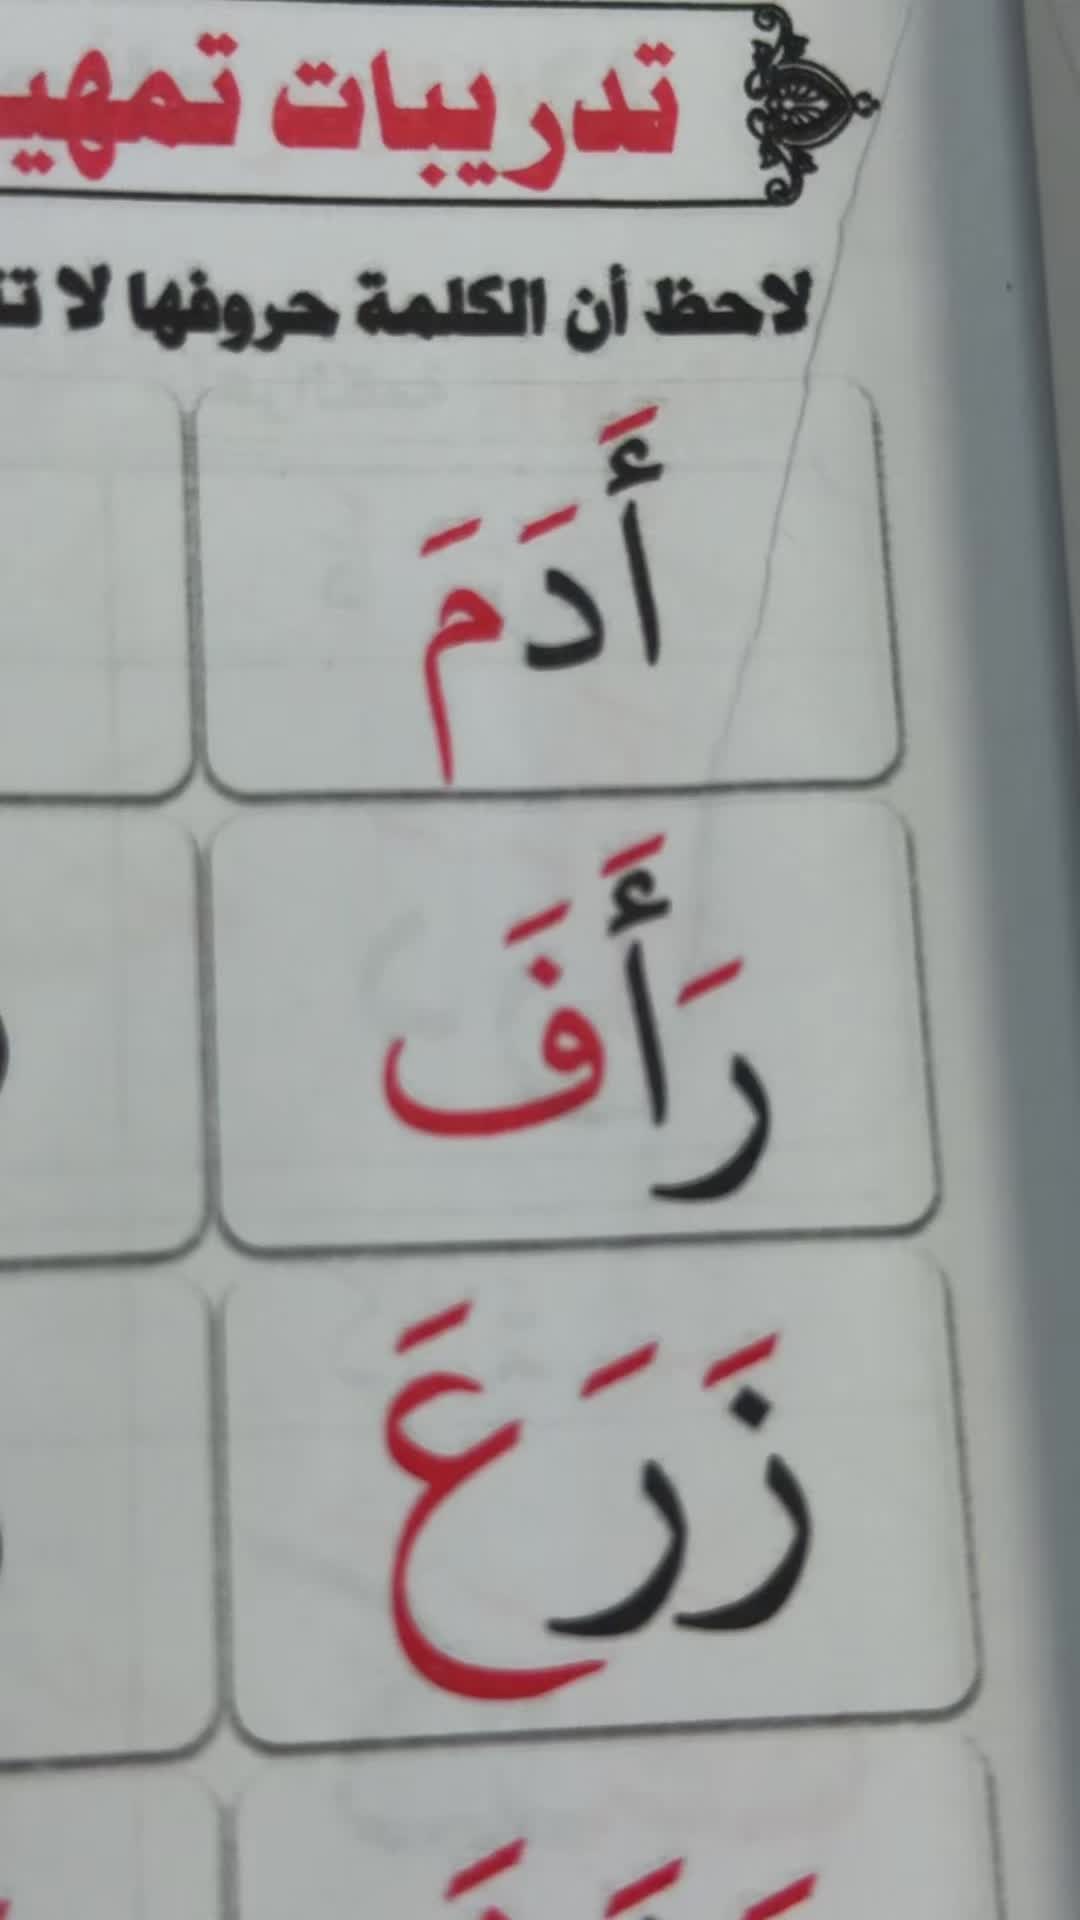 تدريبات
لاحظ أن الكلمة حروفها لا
أَدَمَ
رَأَفَ
زَرَعَ